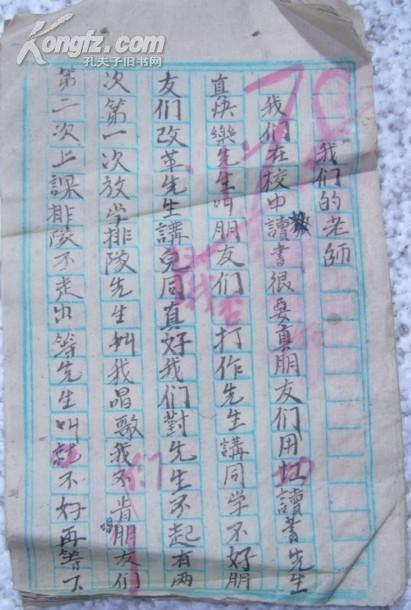 Kongfz.com
孔夫子旧书网
70
我们的老師
我们在校中讀書很要真朋友们用扛讀書先生
真快樂先生叫朋友们打作先生講同学不好朋
友们改革先生講免同真好我们對先生不起有两
次第一次放学排隊先生叫我唱歌我不肯朋友们
第二次上課排隊不走出等先生叫就不好再等下